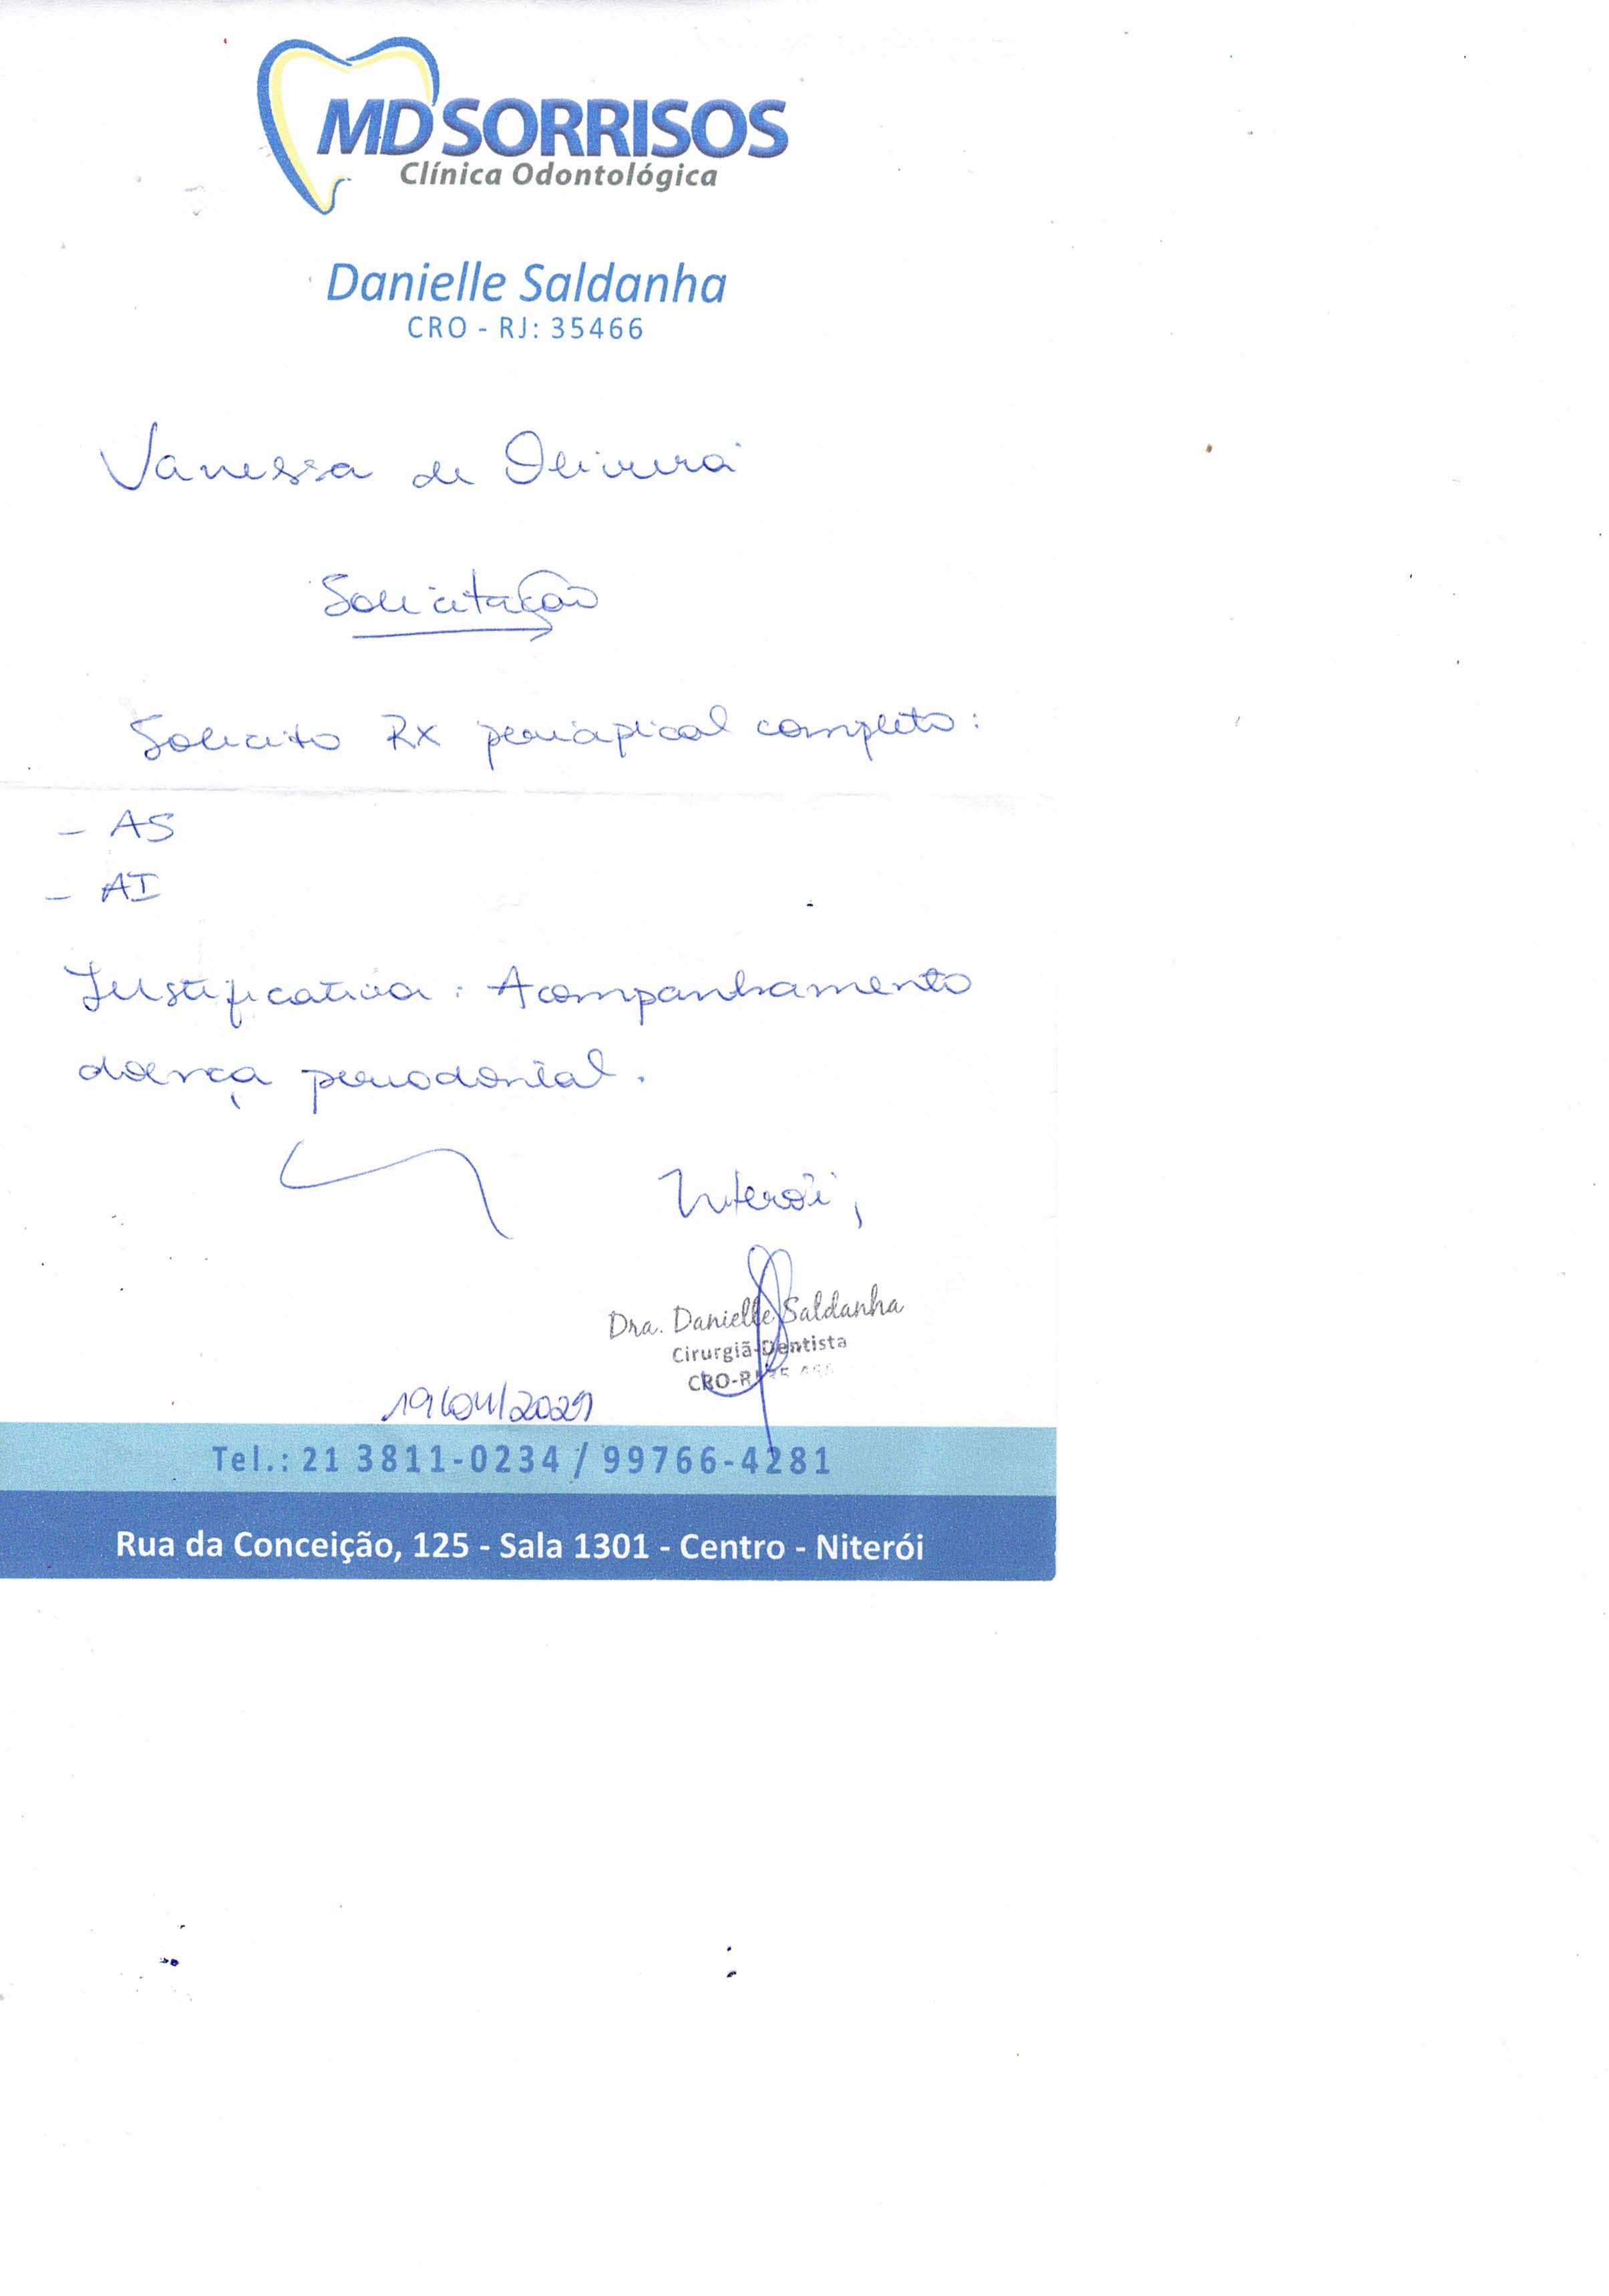 MD SORRISOS
Clínica Odontológica
Danielle Saldanha
CRO - RJ: 35466
Vanessa de Oliveira
Solicitação
Solicito Rx periapical completo:
- AS
- AI
Justificativa: Acompanhamento
doença periodontal.
Niterói,
Dra. Danielle Saldanha
Cirurgiã-Dentista
CRO-RJ
19/04/2021
Tel.: 21 3811-0234 / 99766-4281
Rua da Conceição, 125 - Sala 1301 - Centro - Niterói